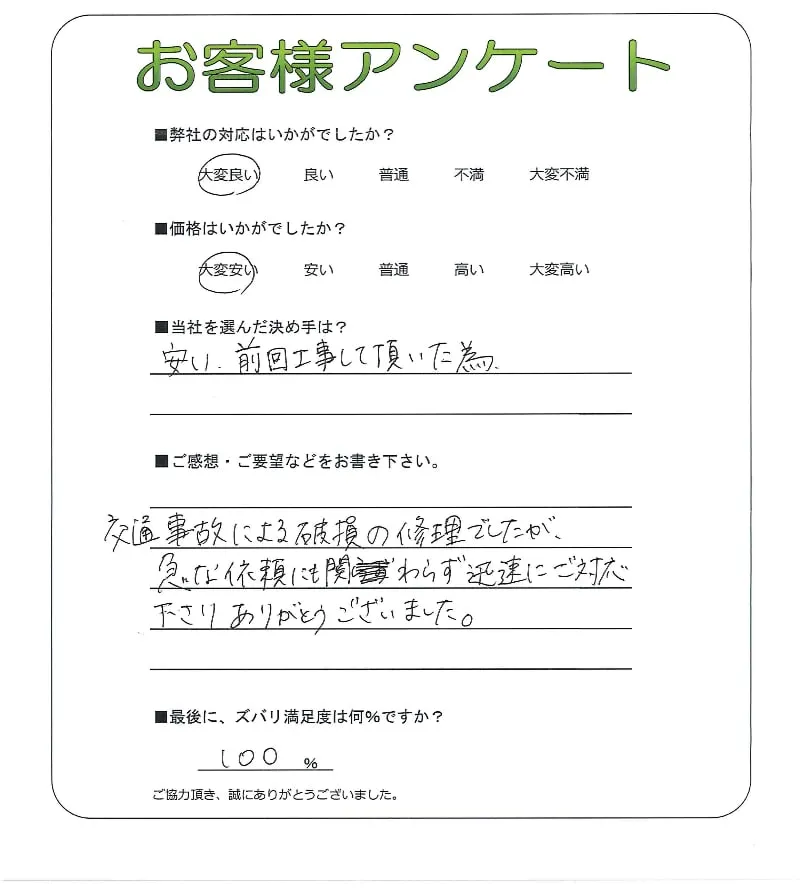 お客様アンケート
■弊社の対応はいかがでしたか？
大変良い 良い 普通 不満 大変不満
■価格はいかがでしたか？
大変安い 安い 普通 高い 大変高い
■当社を選んだ決め手は？
安い、前回工事して頂いた為、
■ご感想・ご要望などをお書き下さい。
交通事故による破損の修理でしたが、
急な依頼にも関わらず迅速にご対応
下さりありがとうございました。
■最後に、ズバリ満足度は何%ですか？
100 %
ご協力頂き、誠にありがとうございました。